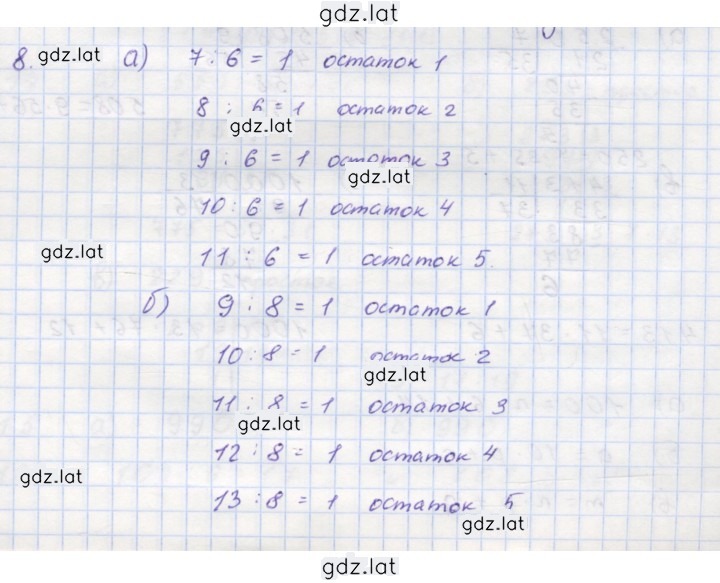 gdz.lat
8. gdz.lat а) 7 : 6 = 1 остаток 1
8 : 6 = 1 остаток 2
gdz.lat
9 : 6 = 1 остаток 3
gdz.lat
10 : 6 = 1 остаток 4
gdz.lat
11 : 6 = 1 остаток 5.
б) 9 : 8 = 1 остаток 1
10 : 8 = 1 остаток 2
gdz.lat
11 : 8 = 1 остаток 3
gdz.lat
12 : 8 = 1 остаток 4
gdz.lat
13 : 8 = 1 остаток 5
gdz.lat
gdz.lat